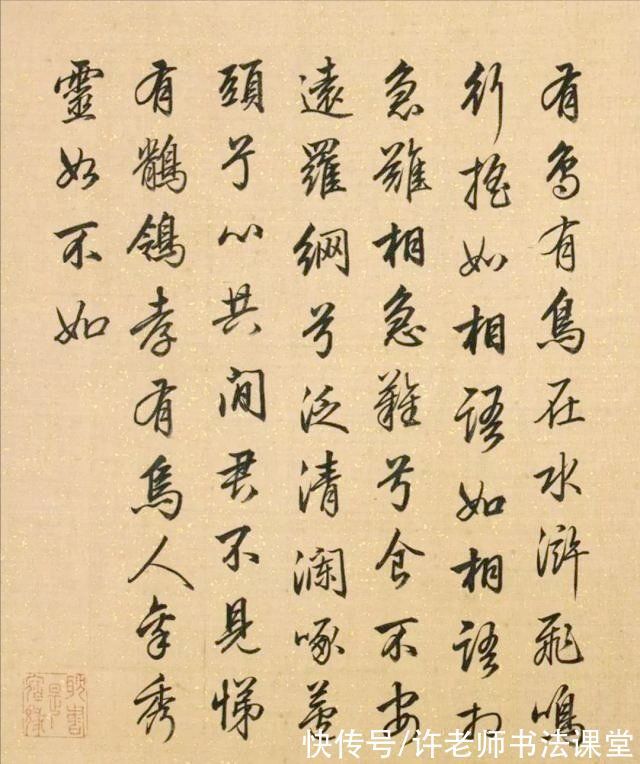 有鳥有鳥在水滸飛鳴
行搖如相語如相語於
急難相急難兮食不安
遠羅網兮泛清瀾啄
頭兮心共閒君不見悌
有鶺鴒孝有烏人秀
靈如不如
快传号/许老师书法课堂